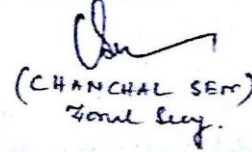 (CHANCHAL SEN)
Zonal Secy.